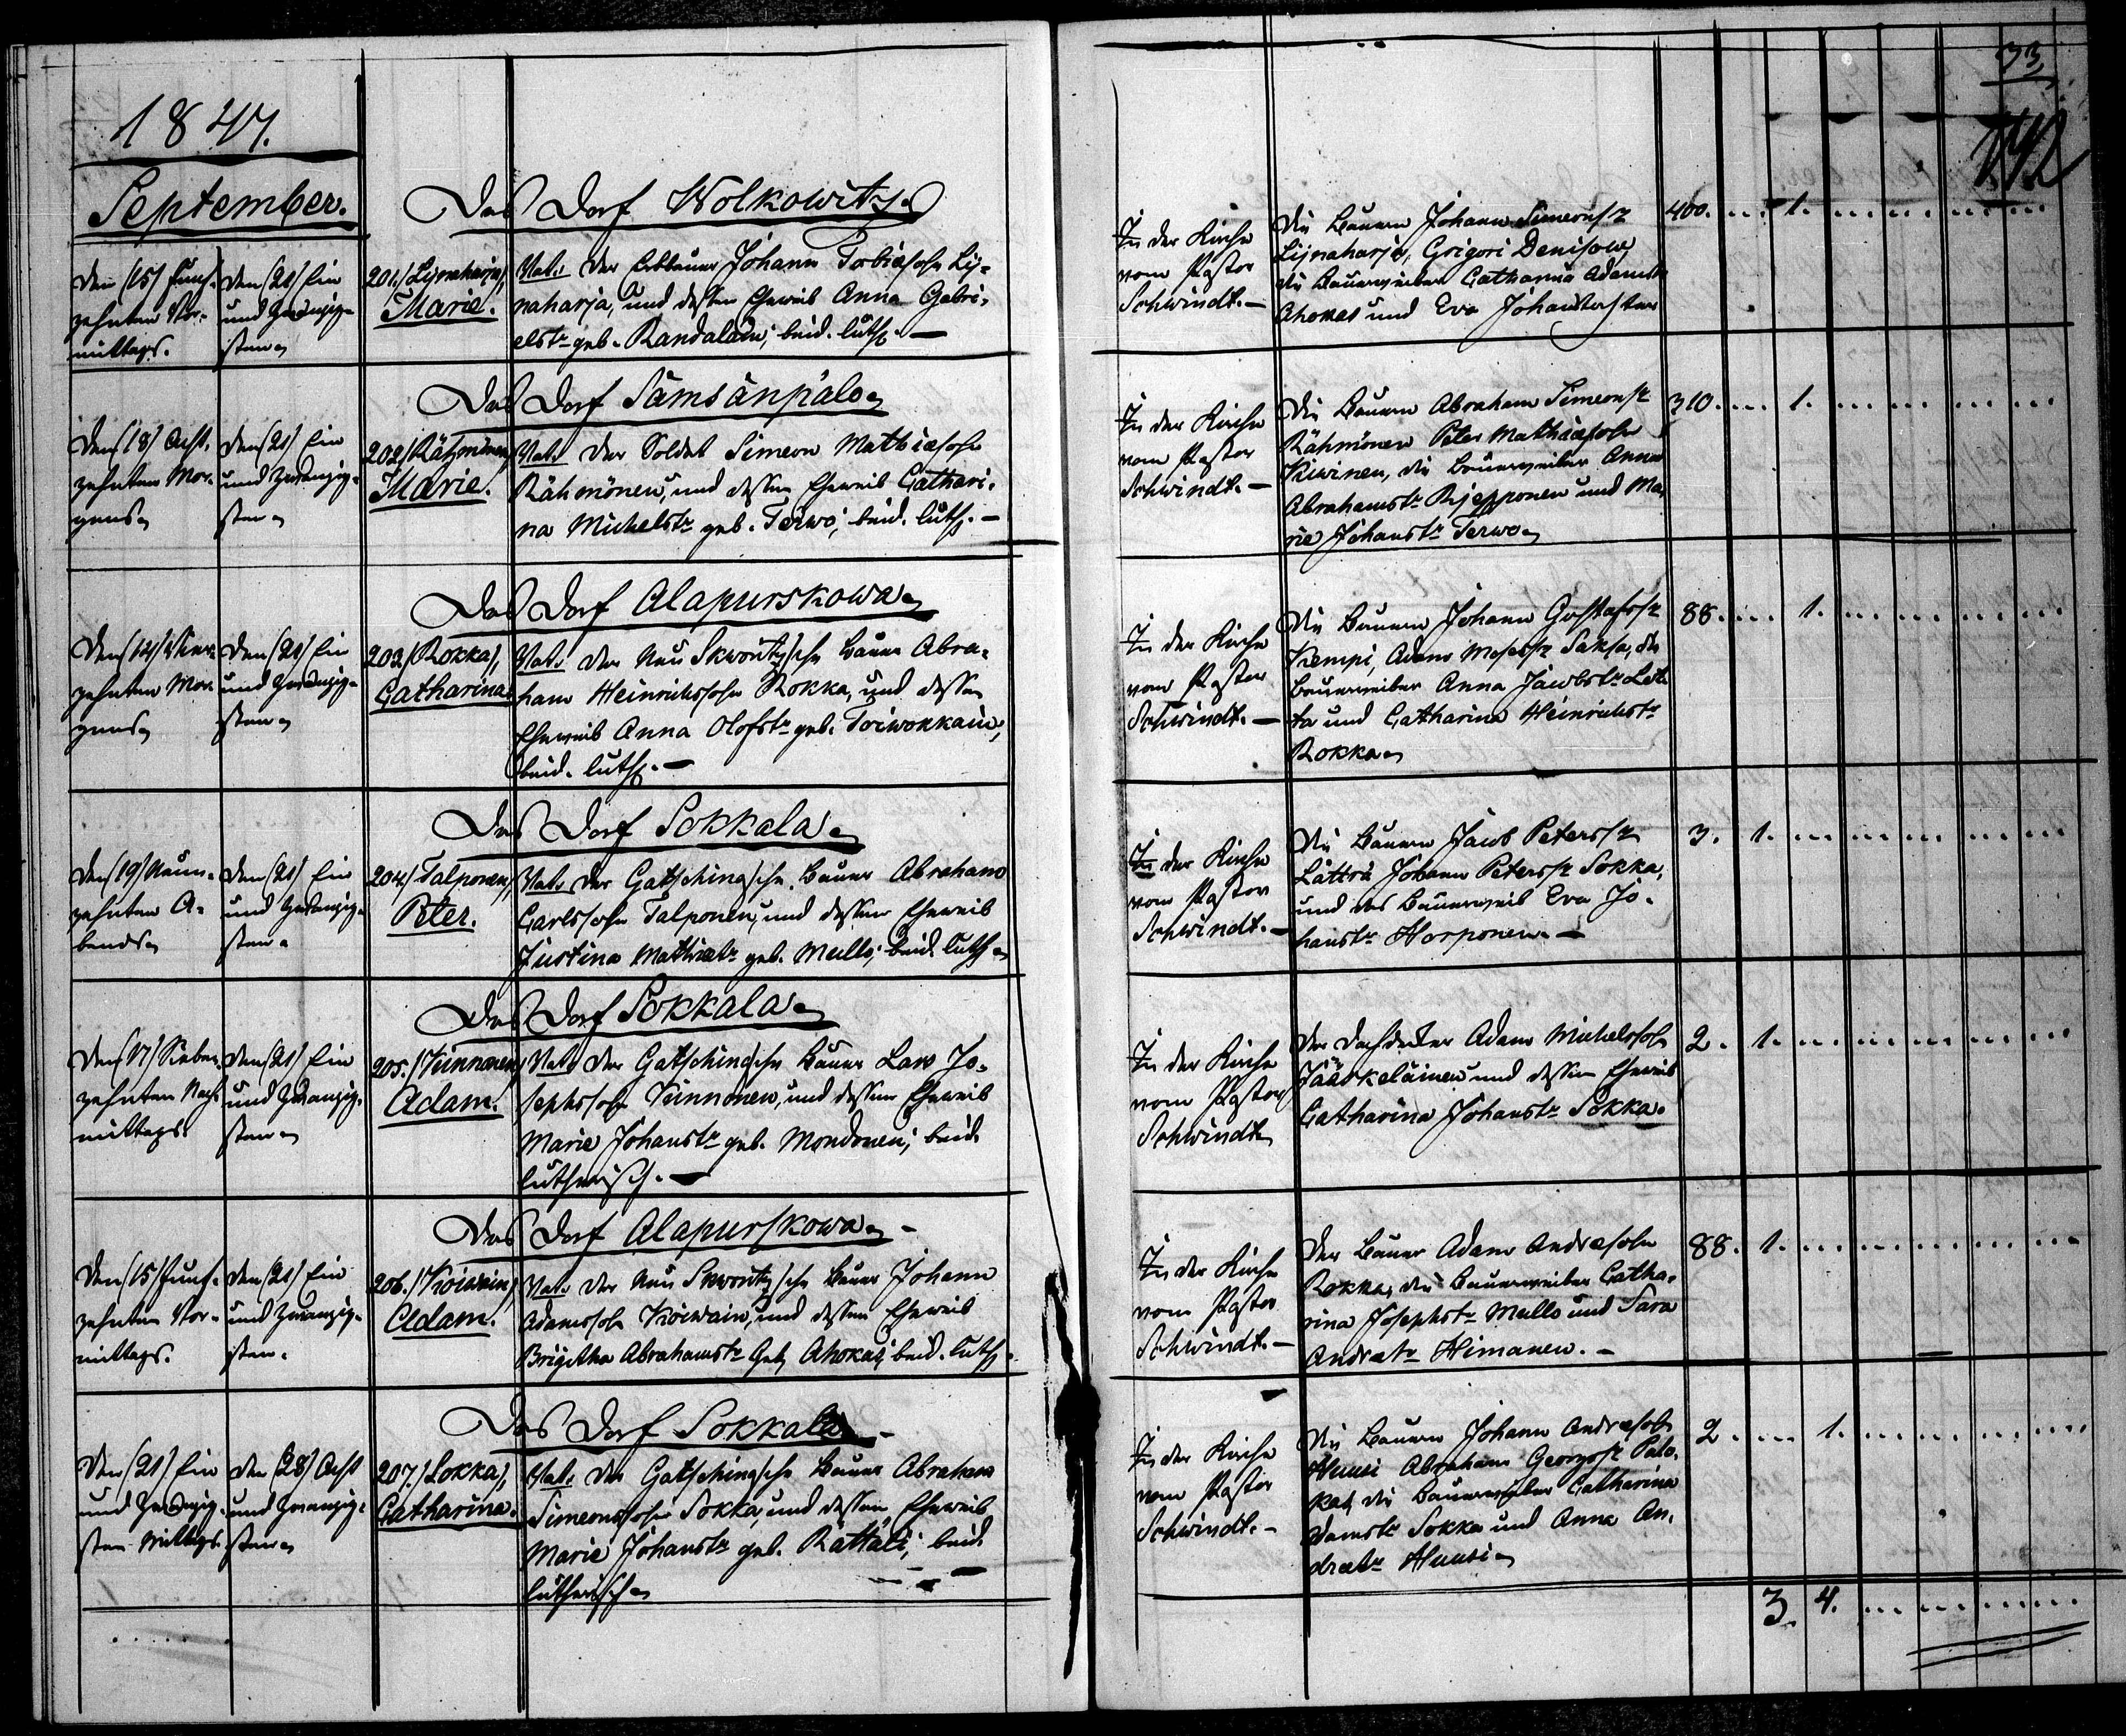 1847.
September.
Das Dorf Wolkowitz.
Den (15) Fünf-
zehnten Vor-
mittags.
Den (21) Ein
und zwanzig-
sten.
201./ Lijnaharja,
Marie.
Vat. der Erbbauer Johann Tobiassohn Lij-
naharja, und dessen Eheweib Anna Gabri-
elstr geb. Randalain; beid. luth.
In der Kirche
vom Pastor
Schwindt.
Die Bauern Johann Simeonss
Lijnaharja, Grigori Denisow,
die Bauerweiber Catharina Adamstr
Ahokas und Eva Johanstochter
400. 1.
Das Dorf Sämsänpälo.
Den (18) Acht-
zehnten Mor-
gens.
Den (21) Ein
und zwanzig-
sten.
202./ Rähmönen,
Marie.
Vat. Der Soldat Simeon Mathiassohn
Rähmönen, und dessen Eheweib Cathari-
na Michelstr geb. Terwo; beid. luth.
In der Kirche
vom Pastor
Schwindt.
Die Bauern Abraham Simeonss
Rähmönen Peter Mathiassohn
Kiwinen, die Bauerweiber Anna
Abrahamstr und Ma-
rie Johanstr Terwo.
310. 1.
Das Dorf Alapurskowa.
Den (14) Vier-
zehnten Mor-
gens.
Den (21) Ein
und zwanzig-
sten.
203./ Rokka,
Catharina.
Vat. Der Neu Skworitzsche Bauer Abra-
ham Heinrichssohn Rokka, und dessen
Eheweib Anna Olofstr geb. Toiwokkain;
beid. luth.
In der Kirche
vom Pastor
Schwindt.
Die Bauern Johann Gustafss
Kempi, Adam Mosesss Saksa, die
Bauerweiber Anna Jacobstr
ta und Catharina Heinrichstr
Rokka.
88. 1.
Das Dorf Sokkala.
Den (19) Neun-
zehnten A-
bends.
Den (21) Ein
und zwanzig-
sten.
204./ Talponen,
Peter.
Vat. Der Gatschinasche Bauer Abraham
Carlssohn Talponen, und dessen Eheweib
Justina Mathiastr geb. Mullo; beid. luth.
In der Kirche
vom Pastor
Schwindt.
Die Bauern Jacob Peterss
Lätträ Johann Peterss Sokka,
und das Bauerweib Eva Jo-
hanstr Horponen.
3. 1.
Das Dorf Sokkala.
Den (17) Sieben-
zehnten Nach-
mittags.
Den (21) Ein
und zwanzig-
sten.
205./ Kinnonen,
Adam.
Vat. Der Gatschinasche Bauer Lars Jo-
sephssohn Kinnonen, und dessen Eheweib
Marie Johanstr geb. Mondonen; beid.
lutherisch.
In der Kirche
vom Pastor
Schwindt
Der Dachdecker Adam Michelssohn
Jääskeläinen und dessen Eheweib
Catharina Johanstr Sokka.
2. 1.
Das Dorf Alapurskowa.
Den (15) Fünf-
zehnten Vor-
mittags.
Den (21) Ein
und zwanzig-
sten.
206./ Koiwain,
Adam.
Vat. Der Neu Skworitzsche Bauer Johann
Adamssohn Koiwain, und dessen Eheweib
Brigitha Abrahamstr Geb. Ahokas; beid. luth.
In der Kirche
vom Pastor
Schwindt.
Der Bauer Adam Andreassohn
Rokka, die Bauerweiber Catha-
rina Josephstr Mullo und Sara
Andreastr Himanen.
88. 1.
Das Dorf Sokkala
Den (21) Ein
und zwanzig-
sten Mittags.
Den (28) Acht
und zwanzig-
sten.
207./ Sokka,
Catharina.
Vat. Der Gatschinasche Bauer Abraham
Simeonssohn Sokka, und dessen Eheweib
Marie Johanstr geb. Rättäli; beid.
lutherisch.
In der Kirche
vom Pastor
Schwindt.
Die Bauern Johann Andreassohn
Huusi Abraham Georgss Palo-
kas, die Bauerweiber Catharina
Adamstr Sokka und Anna An-
dreastr Huusi.
2. 1.
3. 4.